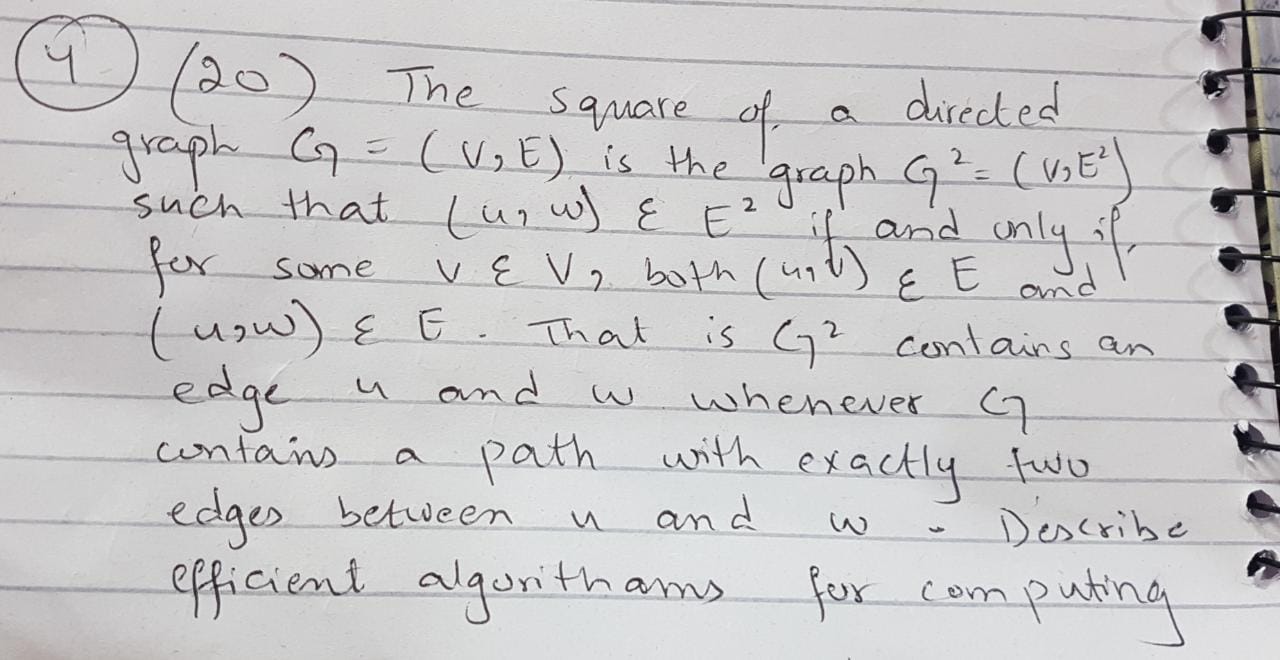 4 (20) The square of a directed
graph G = (V, E) is the graph G² = (V, E²)
such that (u, w) ε E² if and only if,
for some v ε V, both (u, v) ε E and
(u, w) ε E. That is G² contains an
edge u and w whenever G
contains a path with exactly two
edges between u and w. Describe
efficient algorithams for computing